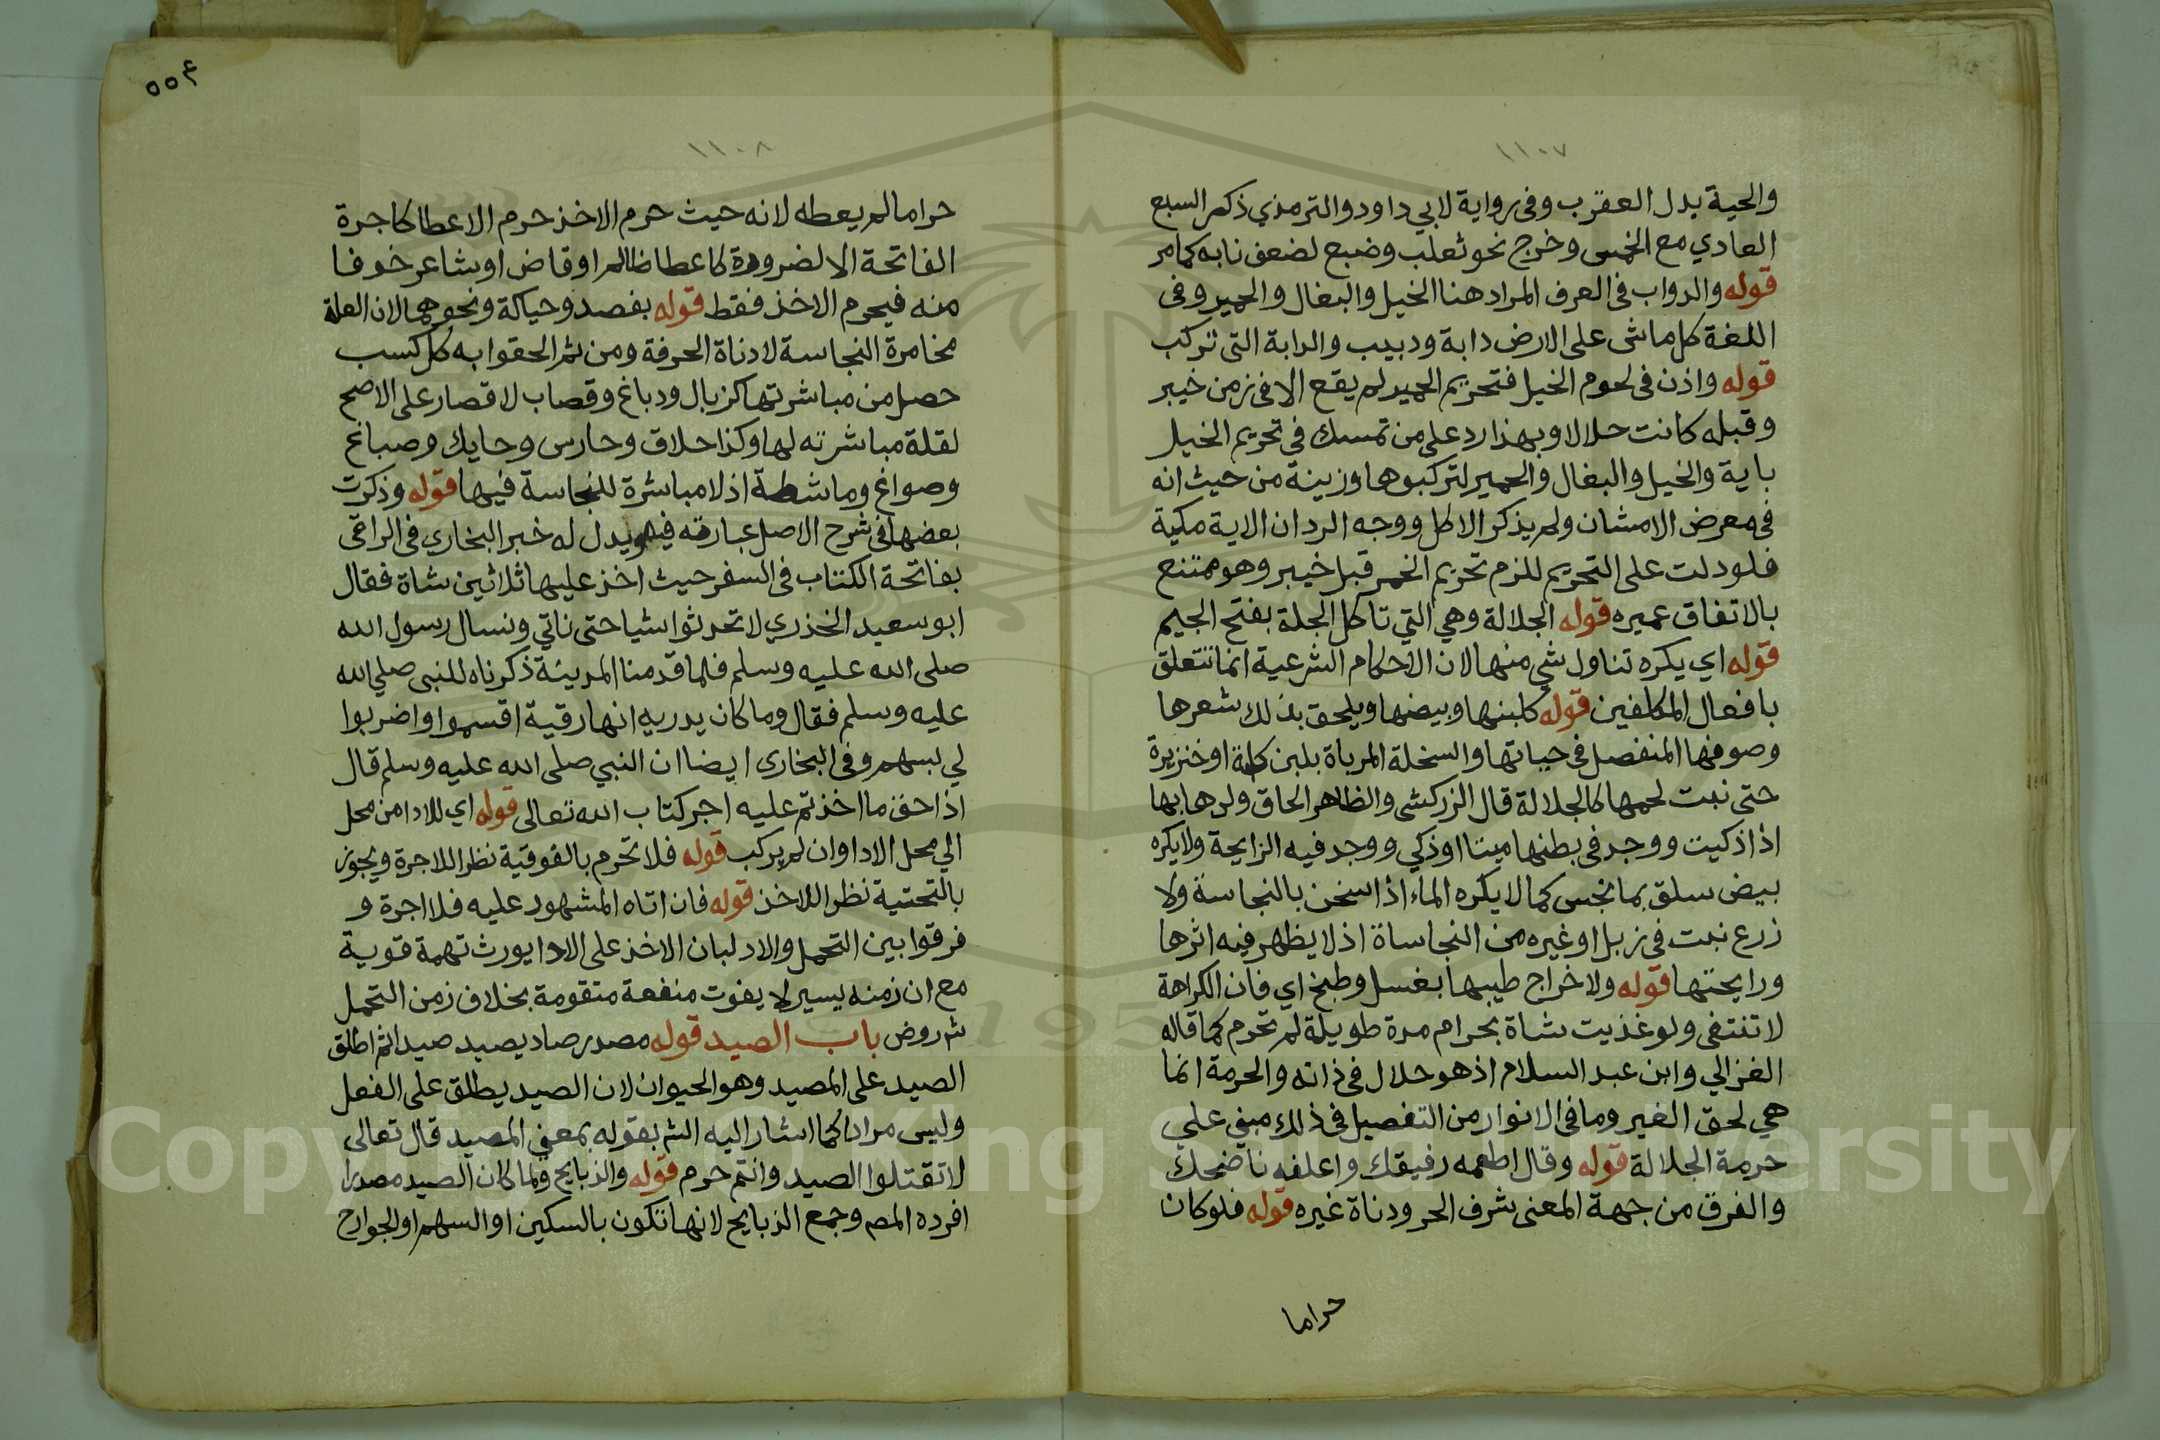 ١١٠٧
والحية بدل العقرب وفي رواية لابي داود والترمذي ذكر السبع
العادي مع الخمس وخرج نحو ثعلب وضبع لضعف نابه كما مر
قوله والدواب في العرف المراد هنا الخيل والبغال والحمير وفي
اللغة كل ماشى على الارض دابة ودبيب والدابة التي تركب
قوله واذن في لحوم الخيل فتحريم الحمير لم يقع الا في زمن خيبر
وقبله كانت حلالا وبهذا رد على من تمسك في تحريم الخيل
باية والخيل والبغال والحمير لتركبوها وزينة من حيث انه
في معرض الامتنان ولم يذكر الاكل ووجه الرد ان الاية مكية
فلو دلت على التحريم للزم تحريم الخمر قبل خيبر وهو ممتنع
بالاتفاق عميره قوله الجلالة وهي التي تاكل الجلة بفتح الجيم
قوله اي يكره تناول شي منها لان الاحكام الشرعية انما تتعلق
بافعال المكلفين قوله كلبنها وبيضها ويلحق بذلك شعرها
وصوفها المنفصل في حياتها والسخلة المرباة بلبن كلبة او خنزيرة
حتى نبت لحمها كالجلالة قال الزركشي والظاهر الحاق ولدها بها
اذا ذكيت ووجد في بطنها ميتا او ذكي ووجد فيه الرايحة ولا يكره
بيض سلق بما نجس كما لا يكره الماء اذا سخن بالنجاسة ولا
زرع نبت في زبل او غيره من النجاساة اذ لا يظهر فيه اثرها
ورايحتها قوله ولاخراج طيبها بغسل وطبخ اي فان الكراهة
لا تنتفي ولو غذيت شاة بحرام مدة طويلة لم تحرم كما قاله
الغزالي وابن عبد السلام اذ هو حلال في ذاته والحرمة انما
هي لحق الغير وما في الانوار من التفصيل في ذلك مبني على
حرمة الجلالة قوله وقال اطعمه رفيقك واعلفه ناضحك
والفرق من جهة المعنى شرف الحر ودناة غيره قوله فلو كان
حراما
٥٥٤
١١٠٨
حراما لم يعطه لانه حيث حرم الاخذ حرم الاعطا كاجرة
الفاتحة الا لضرورة كاعطا ظالم او قاض او شاعر خوفا
منه فيحرم الاخذ فقط قوله بفصد وحياكة ونحوهما لان العلة
مخامرة النجاسة لا دناة الحرفة ومن ثم الحقوا به كل كسب
حصل من مباشرتها كزبال ودباغ وقصاب لا قصار على الاصح
لقلة مباشرته لها وكذا حلاق وحارس وحايك وصباغ
وصواغ وماشطة اذ لا مباشرة للنجاسة فيها قوله وذكرت
بعضها في شرح الاصل عبارته فيه ويدل له خبر البخاري في الراقي
بفاتحة الكتاب في السفر حيث اخذ عليها ثلاثين شاة فقال
ابو سعيد الخذري لا تحدثوا شيا حتى ناتي ونسال رسول الله
صلى الله عليه وسلم فلما قدمنا المدينة ذكرناه للنبي صلي الله
عليه وسلم فقال وما كان يدريه انها رقية اقسموا واضربوا
لي بسهم وفي البخاري ايضا ان النبي صلى الله عليه وسلم قال
اذا حق ما اخذتم عليه اجر كتاب الله تعالى قوله اي للادا من محل
الي محل الادا وان لم يركب قوله فلا تحرم بالفوقية نظرا للاجرة ويجوز
بالتحتية نظرا للاخذ قوله فان اتاه المشهود عليه فلا اجرة و
فرقوا بين التحمل والاد لبان الاخذ على الادا يورث تهمة قوية
مع ان زمنه يسير لا يفوت منفعة متقومة بخلاف زمن التحمل
شروض باب الصيد قوله مصدر صاد يصيد صيدا ثم اطلق
الصيد على المصيد وهو الحيوان لان الصيد يطلق على الفعل
وليس مرادا كما اشار اليه الش بقوله بمعني المصيد قال تعالى
لا تقتلوا الصيد وانتم حرم قوله والذبايح ولما كان الصيد مصدرا
افرده المص وجمع الذبايح لانها تكون بالسكين او السهم او الجوارح
Copyright © King Saud University